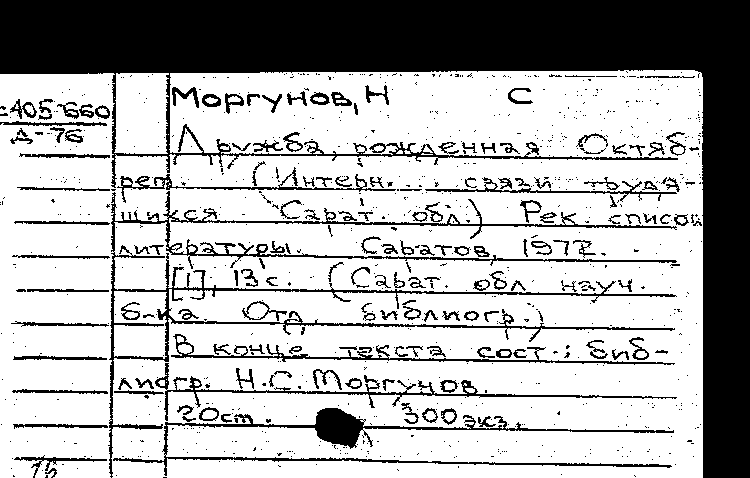 Моргунов, Н С
с405-660
Д-76
Дружба, рожденная Октяб-
рем. (Интерн... связи трудя-
щихся Сарат. обл.) Рек. список
литературы. Саратов, 1972.
[1], 13 с. (Сарат. обл науч.
б-ка. Отд. библиогр.)
В конце текста сост.: биб-
лиогр. Н.С. Моргунов.
20 см. 300 экз.